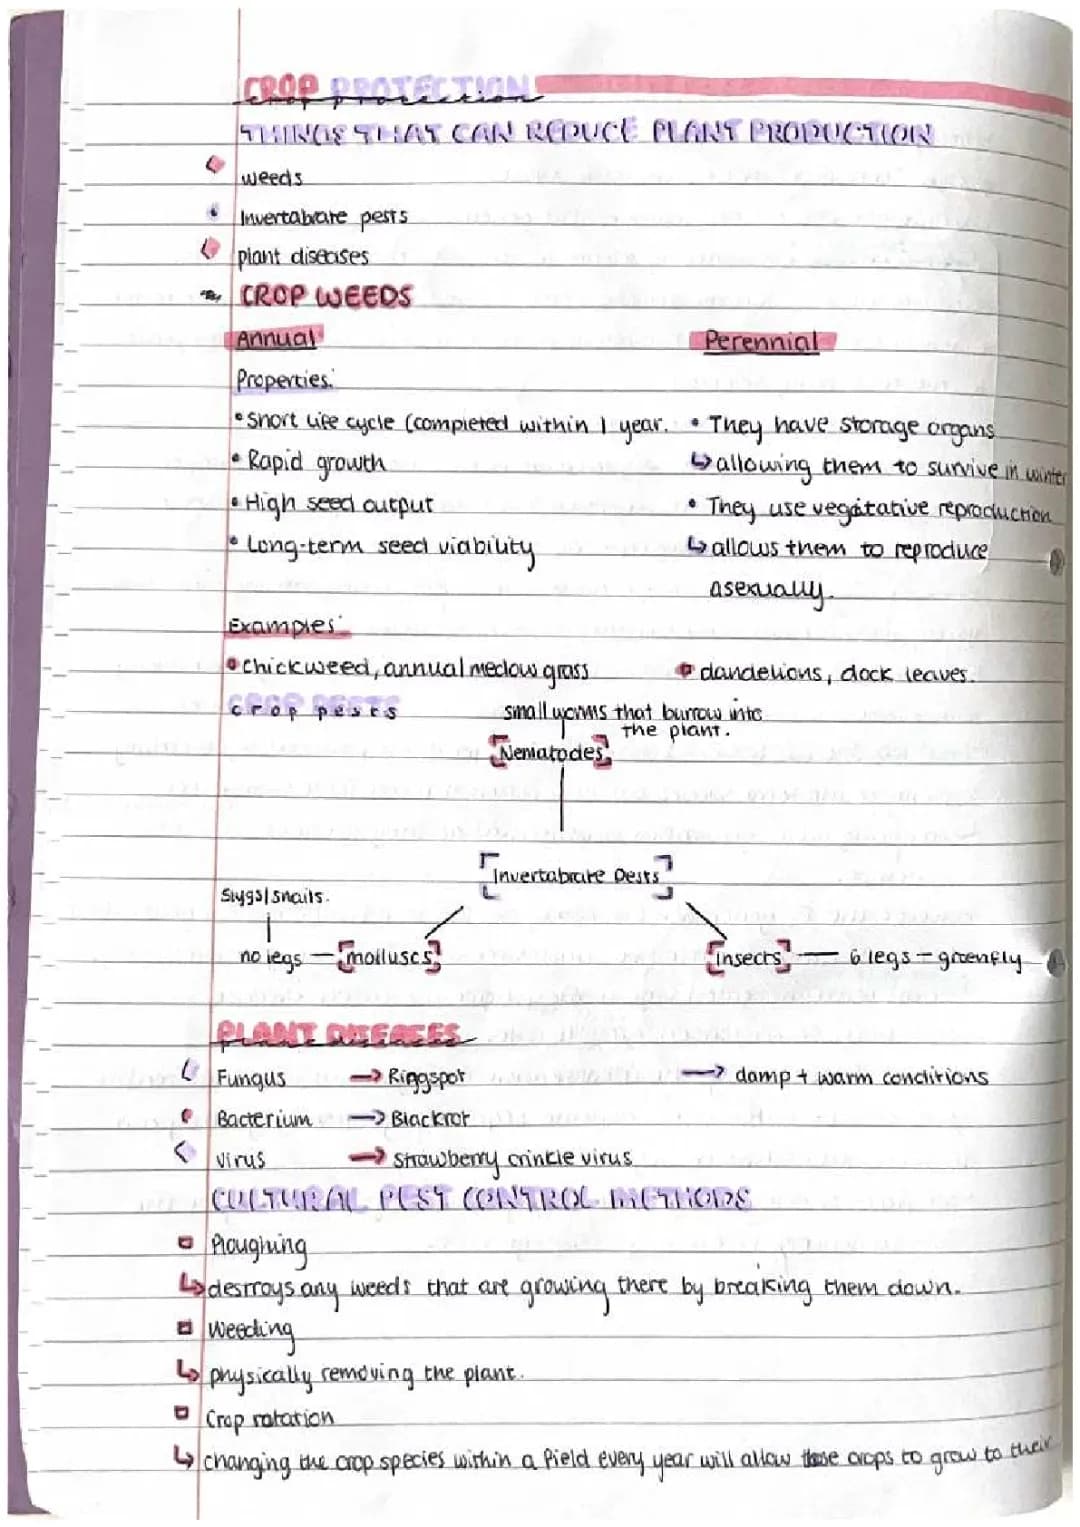 CROP PROTECTION
crop protection
THINGS THAT CAN REDUCE PLANT PRODUCTION
weeds
Invertabrate pests
plant diseases
CROP WEEDS
Annual Perennial
Properties:
• Short life cycle (completed within 1 year. • They have storage organs
• Rapid growth ↳ allowing them to survive in winter
• High seed output • They use vegatative reproduction
• Long-term seed viability ↳ allows them to reproduce
asexually.
Examples:
• chickweed, annual medow grass • dandelions, dock leaves.
crop pests small worms that burrow into
the plant.
[Nematodes]
[Invertabrate Pests]
Slugs/snails.
no legs — [molluscs] [insects] — 6 legs — greenfly
PLANT DISEASES
Fungus → Ringspot → damp + warm conditions
Bacterium → Blackrot
virus → Strawberry crinkle virus
CULTURAL PEST CONTROL METHODS
Ploughing
↳ destroys any weeds that are growing there by breaking them down.
Weeding
↳ physically removing the plant.
Crop rotation
↳ changing the crop species within a field every year will allow those crops to grow to their